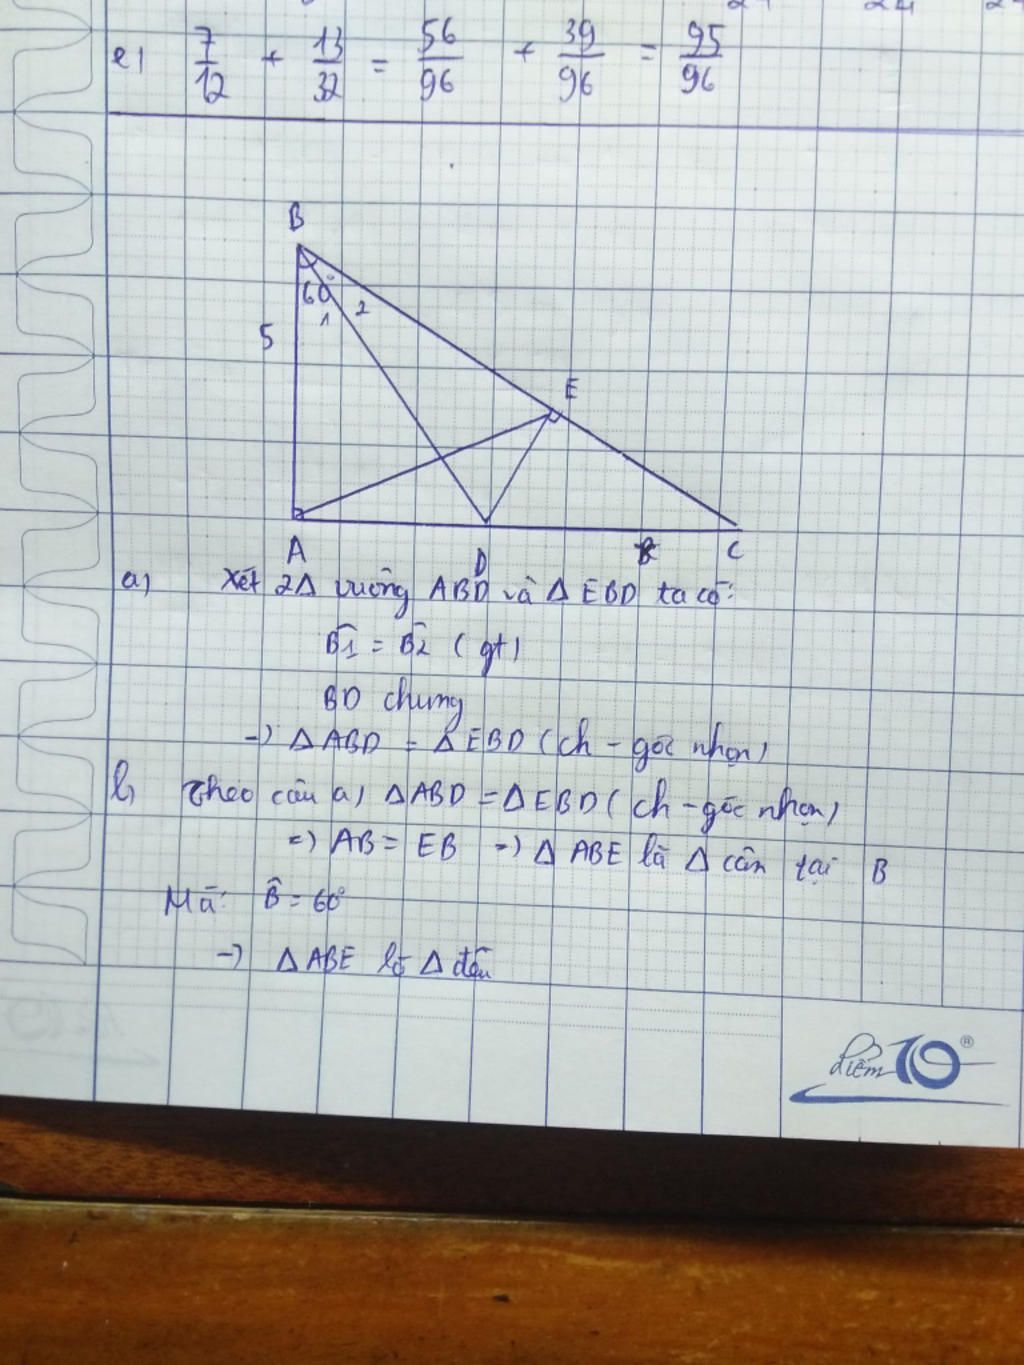 e) 7/12 + 13/32 = 56/96 + 39/96 = 95/96
B
60°
1 2
5
E
A D C
a) Xét 2Δ vuông ABD và Δ EBD ta có:
B̂1 = B̂2 (gt)
BD chung
=) Δ ABD = Δ EBD (ch - góc nhọn)
b, Theo câu a) ΔABD = ΔEBD (ch - góc nhọn)
=) AB = EB =) Δ ABE là Δ cân tại B
Mà: B̂ = 60°
=) Δ ABE là Δ đều
Điểm 10 ®